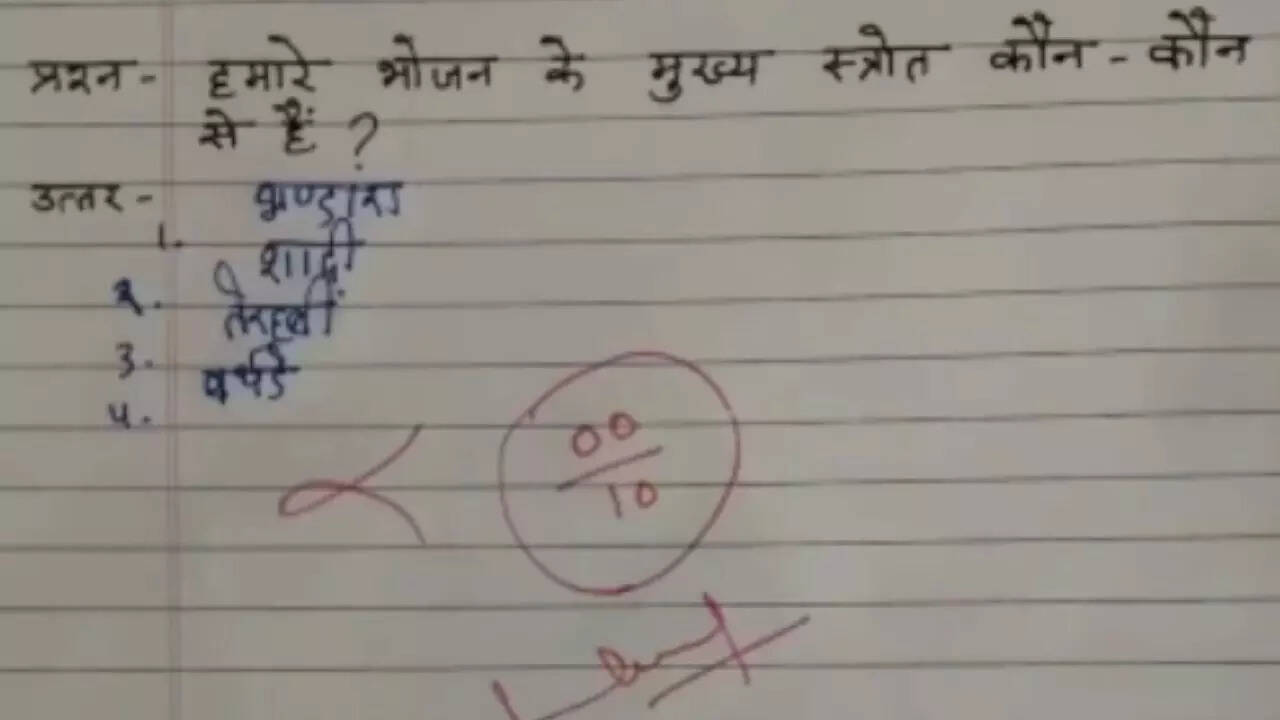 प्रश्न - हमारे भोजन के मुख्य स्त्रोत कौन - कौन
से हैं ?
उत्तर -
1. भण्डारा
२. शादी
3. तेरहवीं
4. बर्थडे
00
10